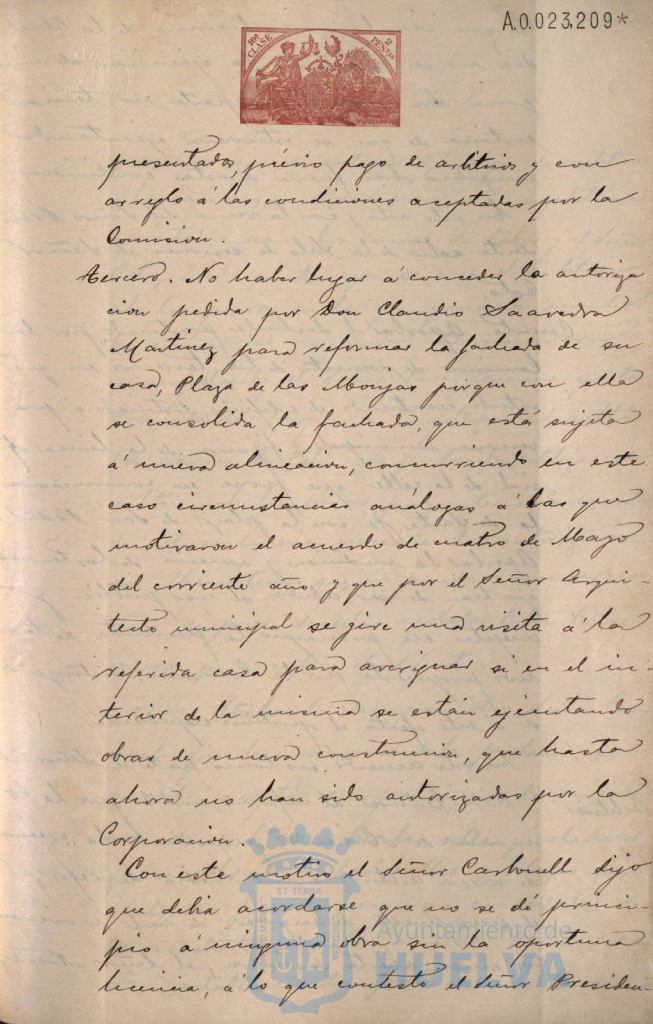 A.0.023,209*
10ª CLASE 2 PESETAS
presentados, prévio pago de arbitrios y con
arreglo á las condiciones aceptadas por la
Comision.
Tercero. No haber lugar á conceder la autoriza
cion pedida por Don Claudio Saavedra
Martinez para reformar la fachada de su
casa, Plaza de las Monjas porque con ella
se consolida la fachada, que está sujeta
á nueva alineacion, concurriendo en este
caso circunstancias análogas á las que
motivaron el acuerdo de cuatro de Mayo
del corriente año y que por el Señor Arqui-
tecto municipal se gire una visita á la
referida casa para averiguar si en el in-
terior de la misma se están ejecutando
obras de nueva construccion, que hasta
ahora no han sido autorizadas por la
Corporacion.
Con este motivo el Señor Carbonell dijo
que debia acordarse que no se dé princi-
pio á ninguna obra sin la oportuna
licencia, á lo que contestó el Señor Presiden-
ET TERRA
Ayuntamiento de
HUELVA